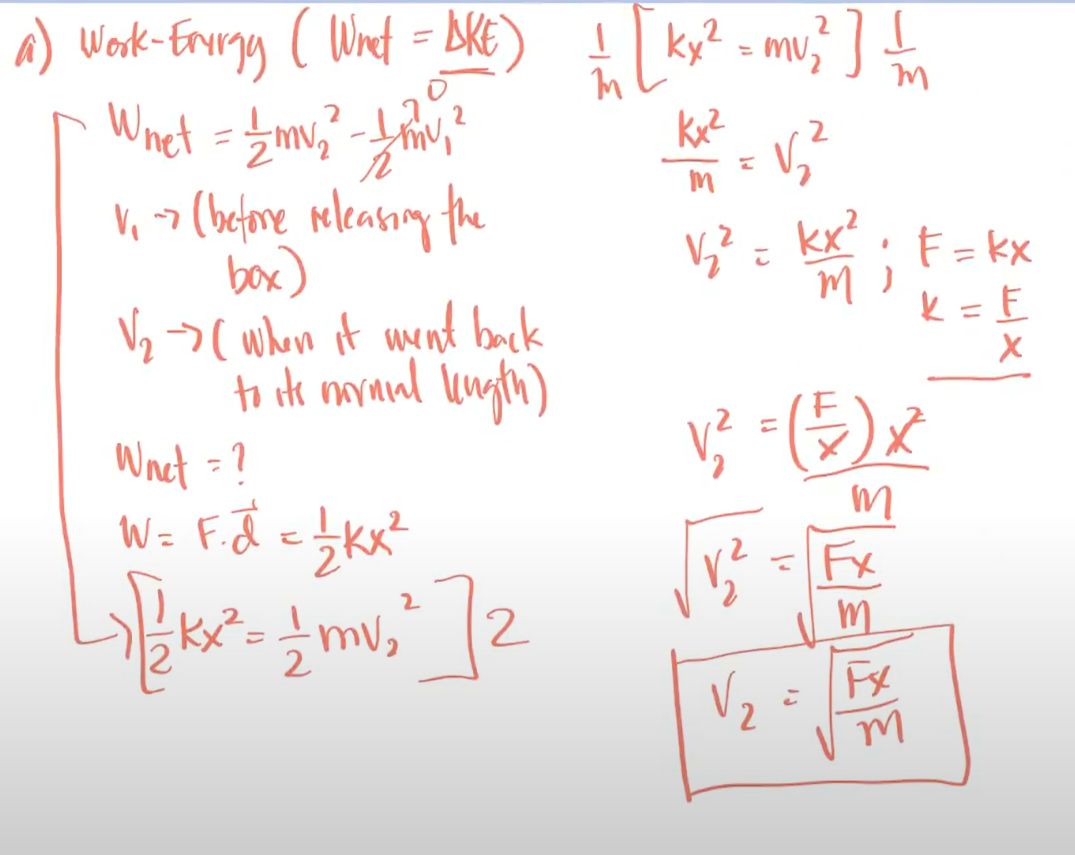 a) Work-Energy ( Wnet = ΔKE )
Wnet = 1/2 mv₂² - 1/2 mv₁² 0
v₁ → (before releasing the
box)
V₂ → ( when it went back
to its normal length)
Wnet = ?
W = F.d⃗ = 1/2 kx²
[ 1/2 kx² = 1/2 mv₂² ] 2
1/m [ kx² = mv₂² ] 1/m
kx²/m = V₂²
V₂² = kx²/m ; F = kx
k = F/x
V₂² = (F/x) x² / m
√V₂² = √(Fx/m)
V₂ = √(Fx/m)